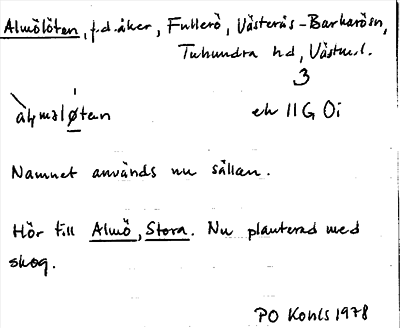 Almölöten, f.d. åker, Fullerö, Västerås-Barkarö sn,
Tuhundra hd, Västm.l.
3
ek 11G 0i
Namnet används nu sällan.
Hör till Almö, Stora. Nu planterad med
skog.
PO Kohls 1978